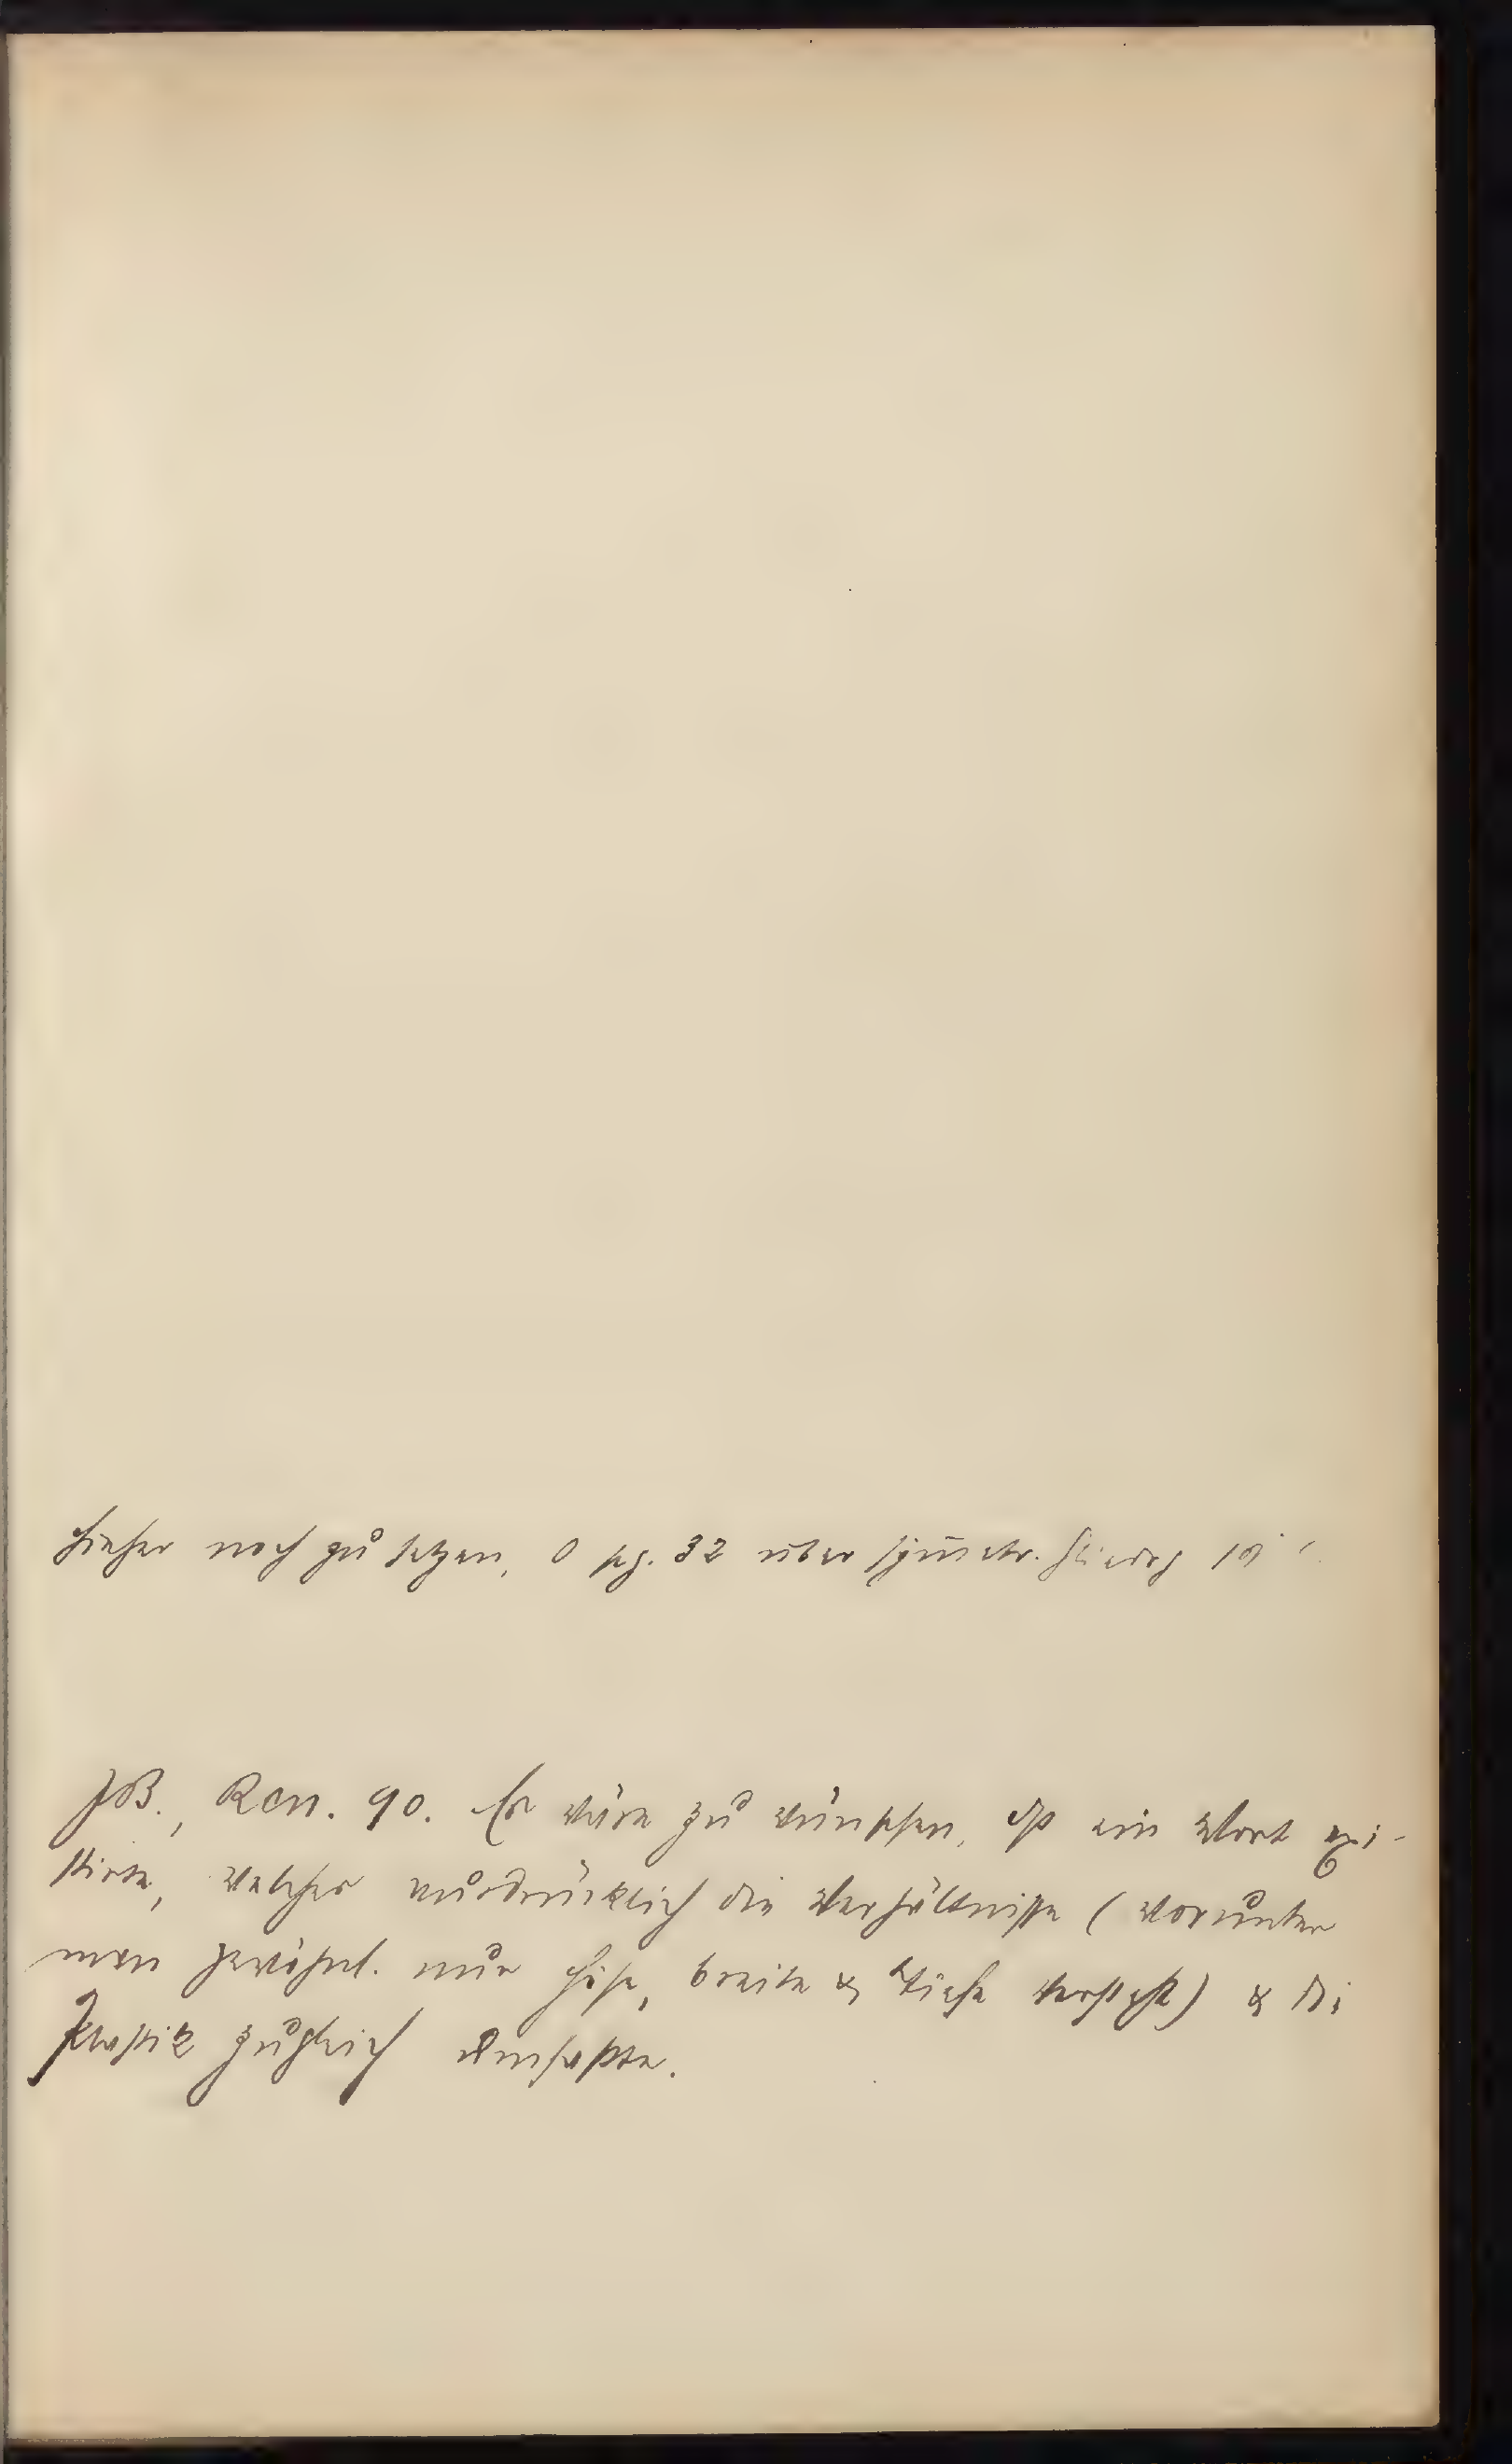 hieher noch zu setzen, O pg. 32 über sÿm̄etr.
JB., Ren. 90. Es wäre zu wünschen, dß ein Wort exi-
stirte, welches ausdrücklich die Verhältnisse (worunter
man gewöhnl. nur Höhe, Breite & Tiefe versteht) & di
Plastik zugleich umfaßte.